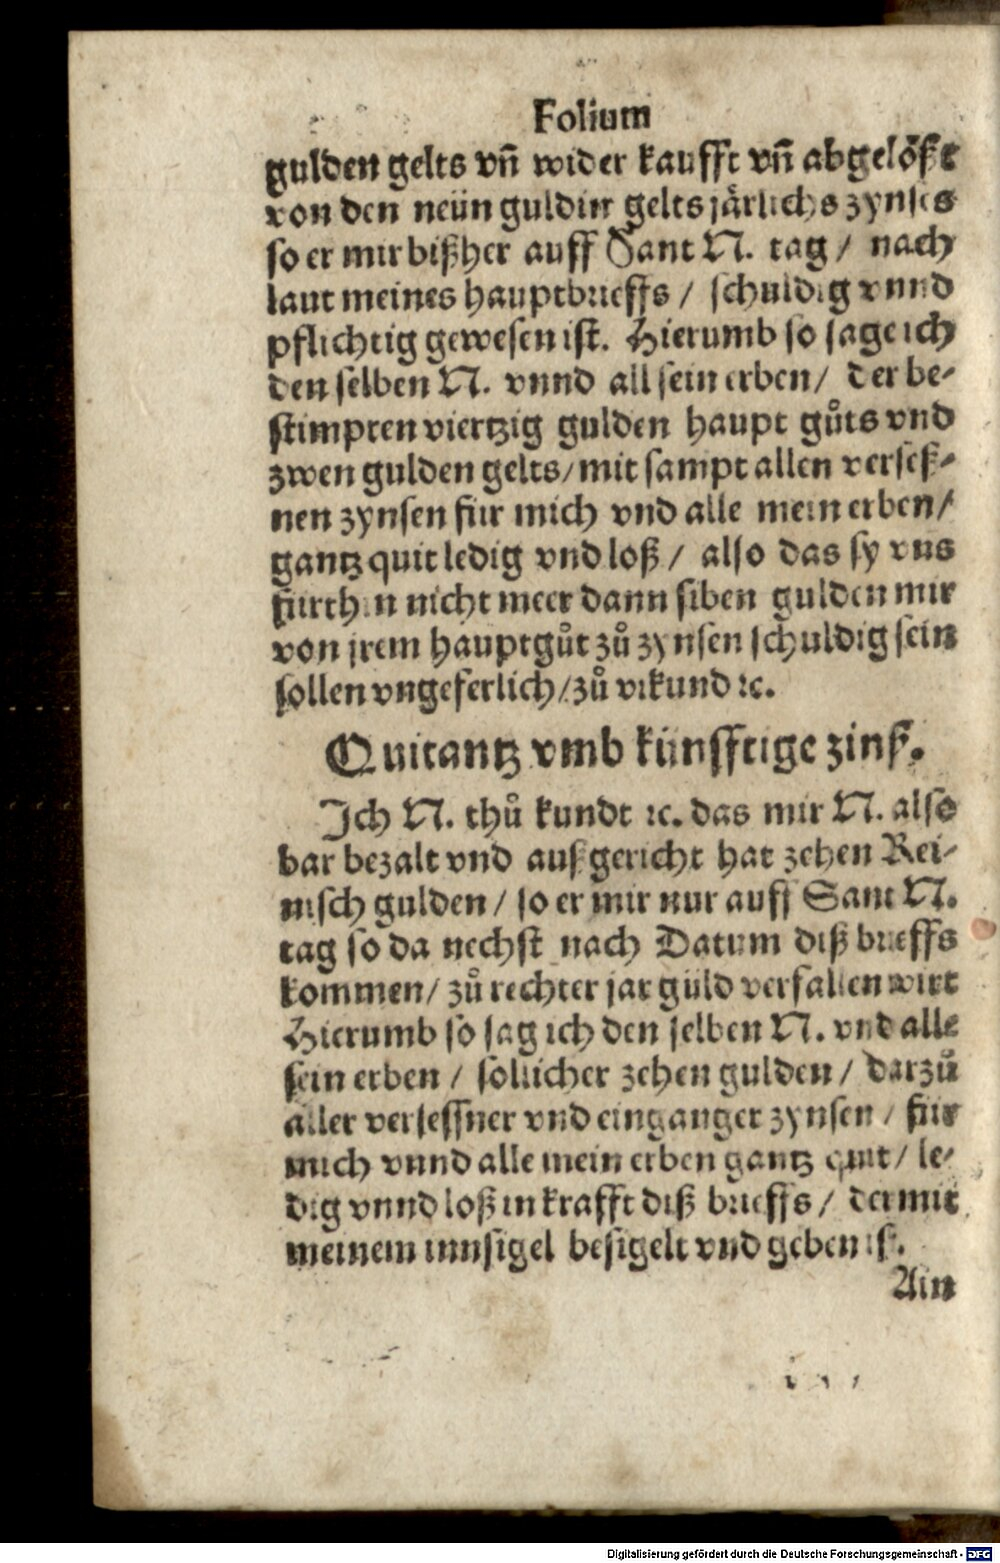 Folium
gulden gelts vñ wider kaufft vñ abgelößt
von den neün guldin gelts järlichs zynses
so er mir bißher auff Sant N. tag / nach
laut meines hauptbrieffs / schuldig vnnd
pflichtig gewesen ist. Hierumb so sage ich
den selben N. vnnd all sein erben / der be-
stimpten viertzig gulden haupt gůts vnd
zwen gulden gelts / mit sampt allen verseß-
nen zynsen für mich vnd alle mein erben /
gantz quit ledig vnd loß / also das sy vns
fürthin nicht meer dann siben gulden mir
von jrem hauptgůt zů zynsen schuldig sein
sollen vngeferlich / zů vrkund ⁊c.
Quitantz vmb künfftige zinß.
Ich N. thů kundt ⁊c. das mir N. also
bar bezalt vnd außgericht hat zehen Rei-
nisch gulden / so er mir nur auff Sant N.
tag so da nechst nach Datum diß brieffs
kommen / zů rechter jar güld verfallen wirt
Hierumb so sag ich den selben N. vnd alle
sein erben / sollicher zehen gulden / darzů
aller versessner vnd einganger zynsen / für
mich vnnd alle mein erben gantz quit / le-
dig vnnd loß in krafft diß brieffs / der mit
meinem innsigel besigelt vnd geben ist.
Ain
Digitalisierung gefördert durch die Deutsche Forschungsgemeinschaft - DFG